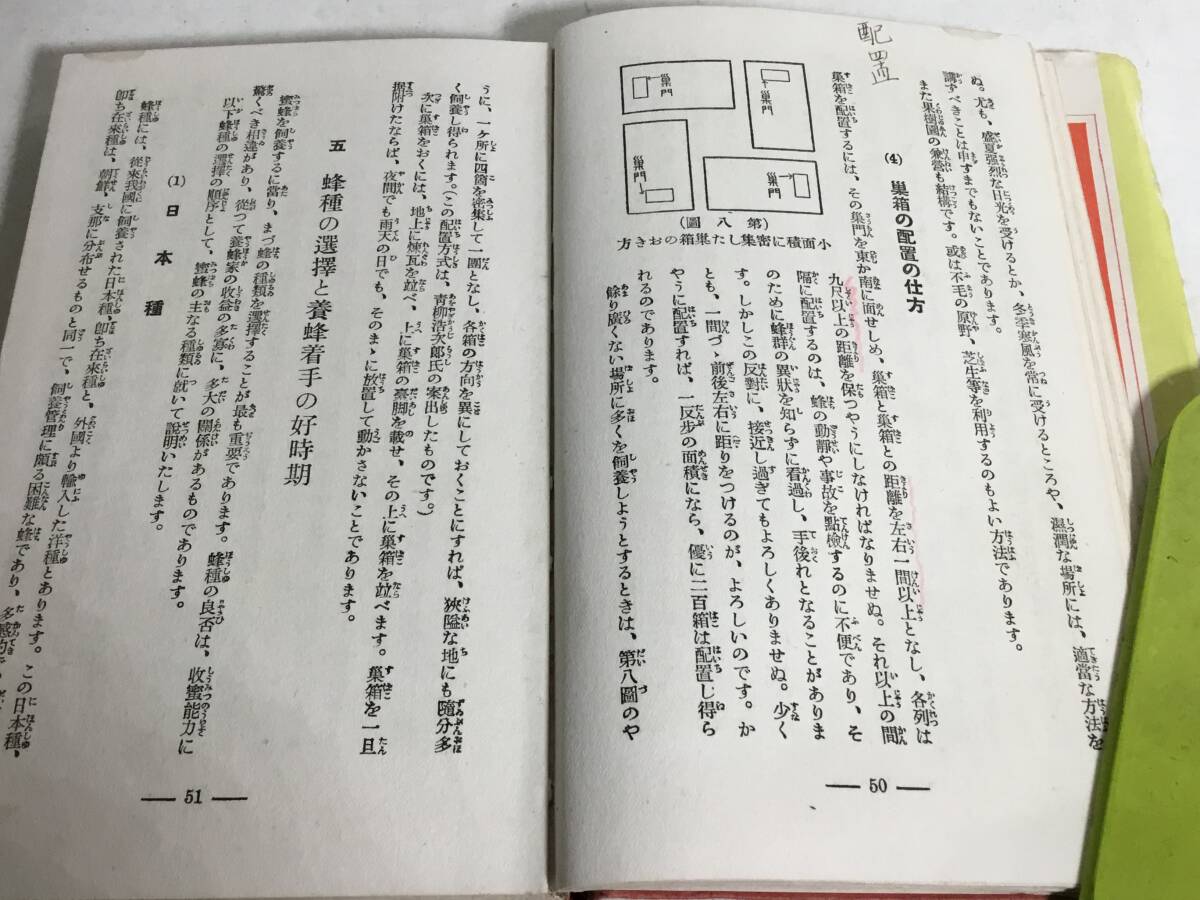 配置
ぬ。尤も、盛夏强烈な日光を受けるとか、冬季寒風を常に受けるところや、濕潤な場所には、適當な方法を
講ずべきことは申すまでもないことであります。或は不毛の原野、芝生等を利用するのもよい方法であります。
また果樹園の兼營も結構です。
(4) 巢箱の配置の仕方
巢箱を配置するには、その巢門を東か南に面せしめ、巢箱と巢箱との距離を左右一間以上となし、各列は
九尺以上の距離を保つやうにしなければなりませぬ。それ以上の間
隔に配置するのは、蜂の動靜や事故を點檢するのに不便であり、そ
のために蜂群の異狀を知らずに看過し、手後れとなることがありま
す。しかしこの反對に、接近し過ぎてもよろしくありませぬ。少く
とも、一間づゝ前後左右に距りをつけるのが、よろしいのです。か
やうに配置すれば、一反步の面積になら、優に二百箱は配置し得ら
れるのであります。
餘り廣くない場所に多くを飼養しようとするときは、第八圖のや
巢門
巢門
巢門
巢門
(圖八第)
方きおの箱巢たし集密に積面小
— 50 —
うに、一ケ所に四箇を密集して一團となし、各箱の方向を異にしておくことにすれば、狹隘な地にも隨分多
く飼養し得られます。(この配置方式は、靑柳浩次郎氏の案出したものです。)
次に巢箱をおくには、地上に煉瓦を竝べ、上に巢箱の臺脚を載せ、その上に巢箱を竝べます。巢箱を一旦
据附けたならば、夜間でも雨天の日でも、そのまゝに放置して動かさないことであります。
五 蜂種の選擇と養蜂着手の好時期
蜜蜂を飼養するに當り、まづ蜂の種類を選擇することが最も重要であります。蜂種の良否は、收蜜能力に
驚くべき相違があり、從つて養蜂家の收益の多寡に、多大の關係があるものであります。
以下蜂種の選擇の順序として、蜜蜂の主なる種類に就いて說明いたします。
(1) 日本種
蜂種には、從來我國に飼養された日本種、卽ち在來種と、外國より輸入した洋種とあります。この日本種、
卽ち在來種は、朝鮮、支那に分布せるものと同一で、飼養管理に頗る困難な蜂であり、多感的で
— 51 —